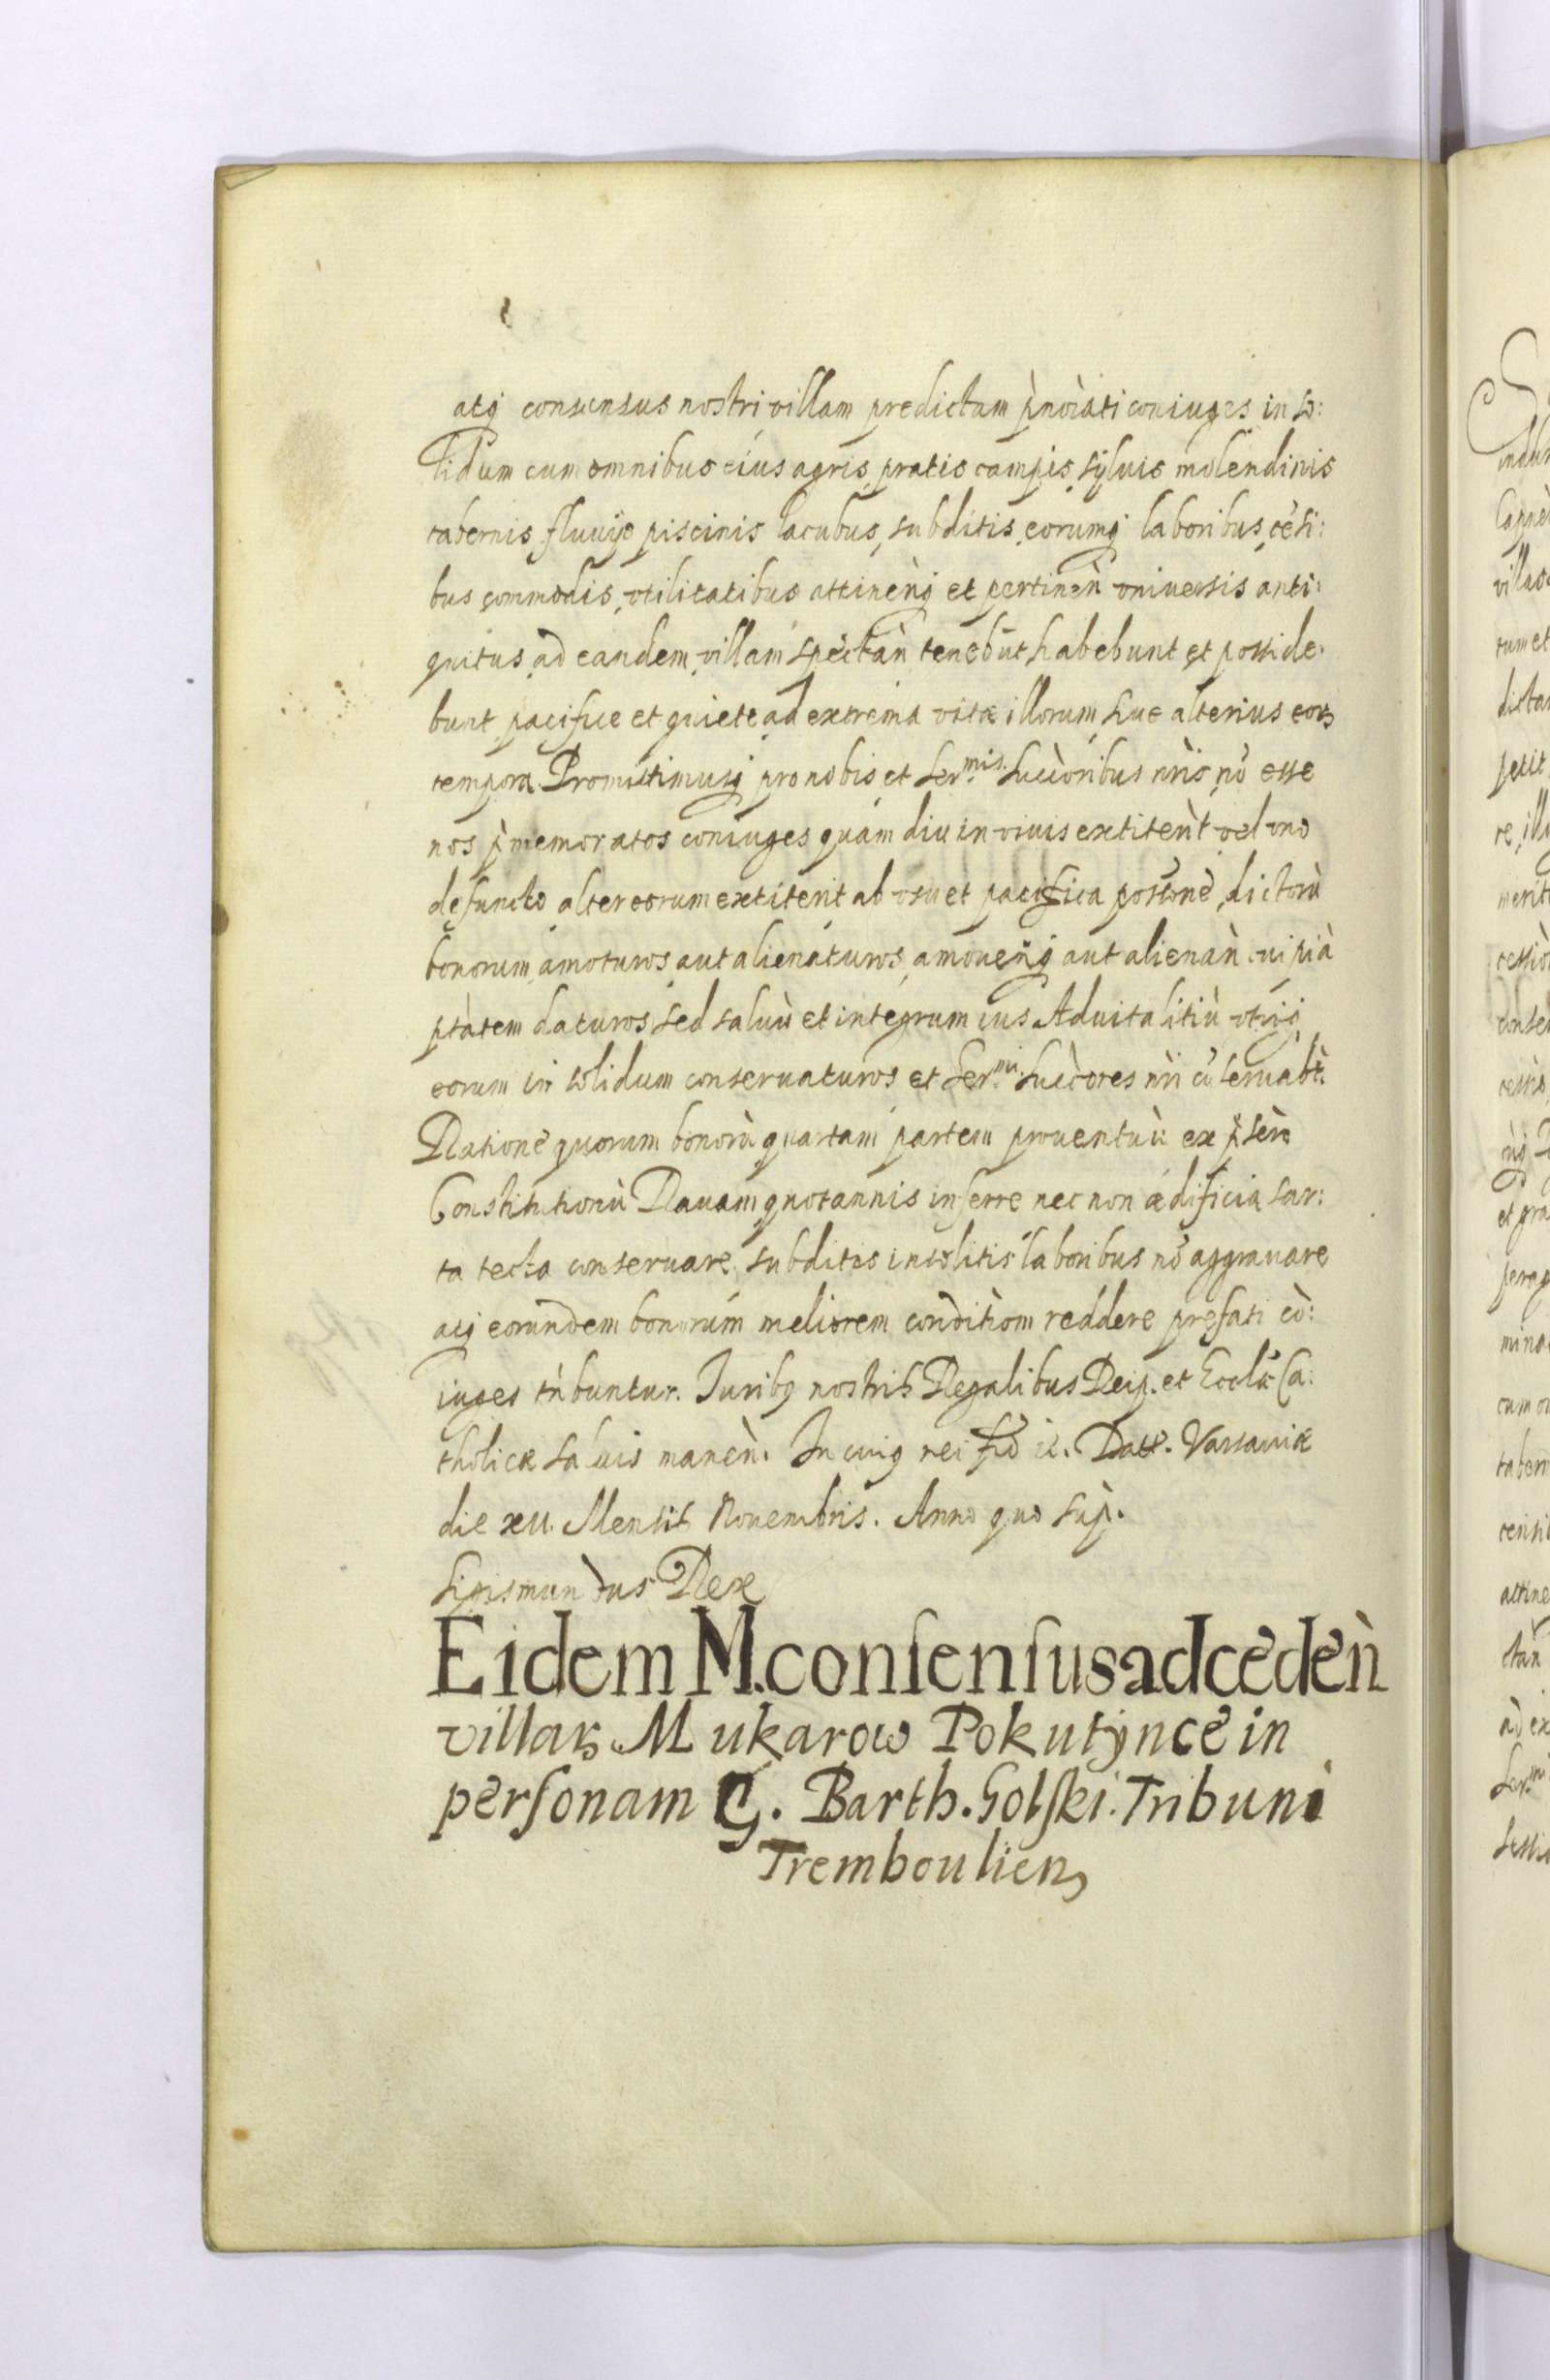 atq consensus nostri villam predictam pnoiati coniuges in so:
lidum cum omnibus eius agris, pratis campis, syluis molendinis
tabernis, fluuijs piscinis lacubus, subditis, eorumq laboribus, cesi:
bus commodis, vtilitatibus attinenq et pertinen vniuersis anti:
quitus ad eandem villam spectan tenebut habebunt et posside:
bunt pacifice et quiete ad extrema vitæ illorum siue alterius eor
tempora. Promittimusq pro nobis et Ser.mis Succoribus nris no esse
nos pmemoratos coniuges quam diu in viuis extiterit vel vno
defuncto alter eorum extiterit ab vsu et pacifica possione dictoru
bonorum amoturos aut alienaturos, amouenq aut alienan cuipia
ptatem daturos sed saluu et integrum ius Aduitalitiu vtriq
eorum in solidum conseruaturos et Ser.mi Succores nri coseruabt.
Ratione quorum bonoru quartam partem prouentuu ex pscro
Constitutionu Rauam quotannis inferre nec non ædificia sar:
ta tecta conseruare, subditos insolitis laboribus no aggrauare
atq eorundem bonorum meliorem conditiom reddere prefati co:
iuges tnbuntur. Iuribq nostris Regalibus Reip. et Eccle Ca:
tholicæ saluis manen. In cuiq rei fid ic. Dat. Varsauiæ
die xv. Mensis Nouembris. Anno quo sup.
Sigismundus Rex
Eidem M. consensus ad ceden
villar Mukarow Pokutynce in
personam G. Barth. Golski. Tribuni
Tremboulien